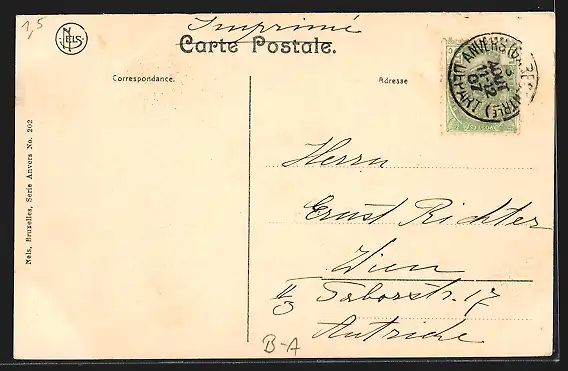 1,5
NELS
Imprimé
Carte Postale.
Correspondance.
Adresse
ANVERS (GARE CENTRALE)
5
AOUT
11-12
07
Nels, Bruxelles, Serie Anvers No. 202
Herrn
Ernst Richter
Wien
II/3 Taborstr. 17
Autriche
B-A